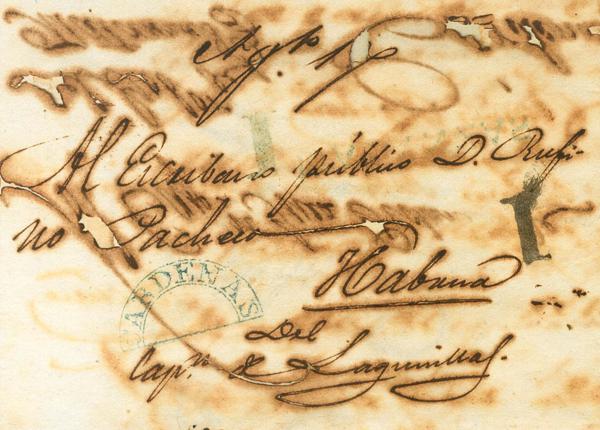 Al Escribano público D. Rufi-
no Pacheco
Habana
CARDENAS
Del
Capn. de Lagunillas.
1